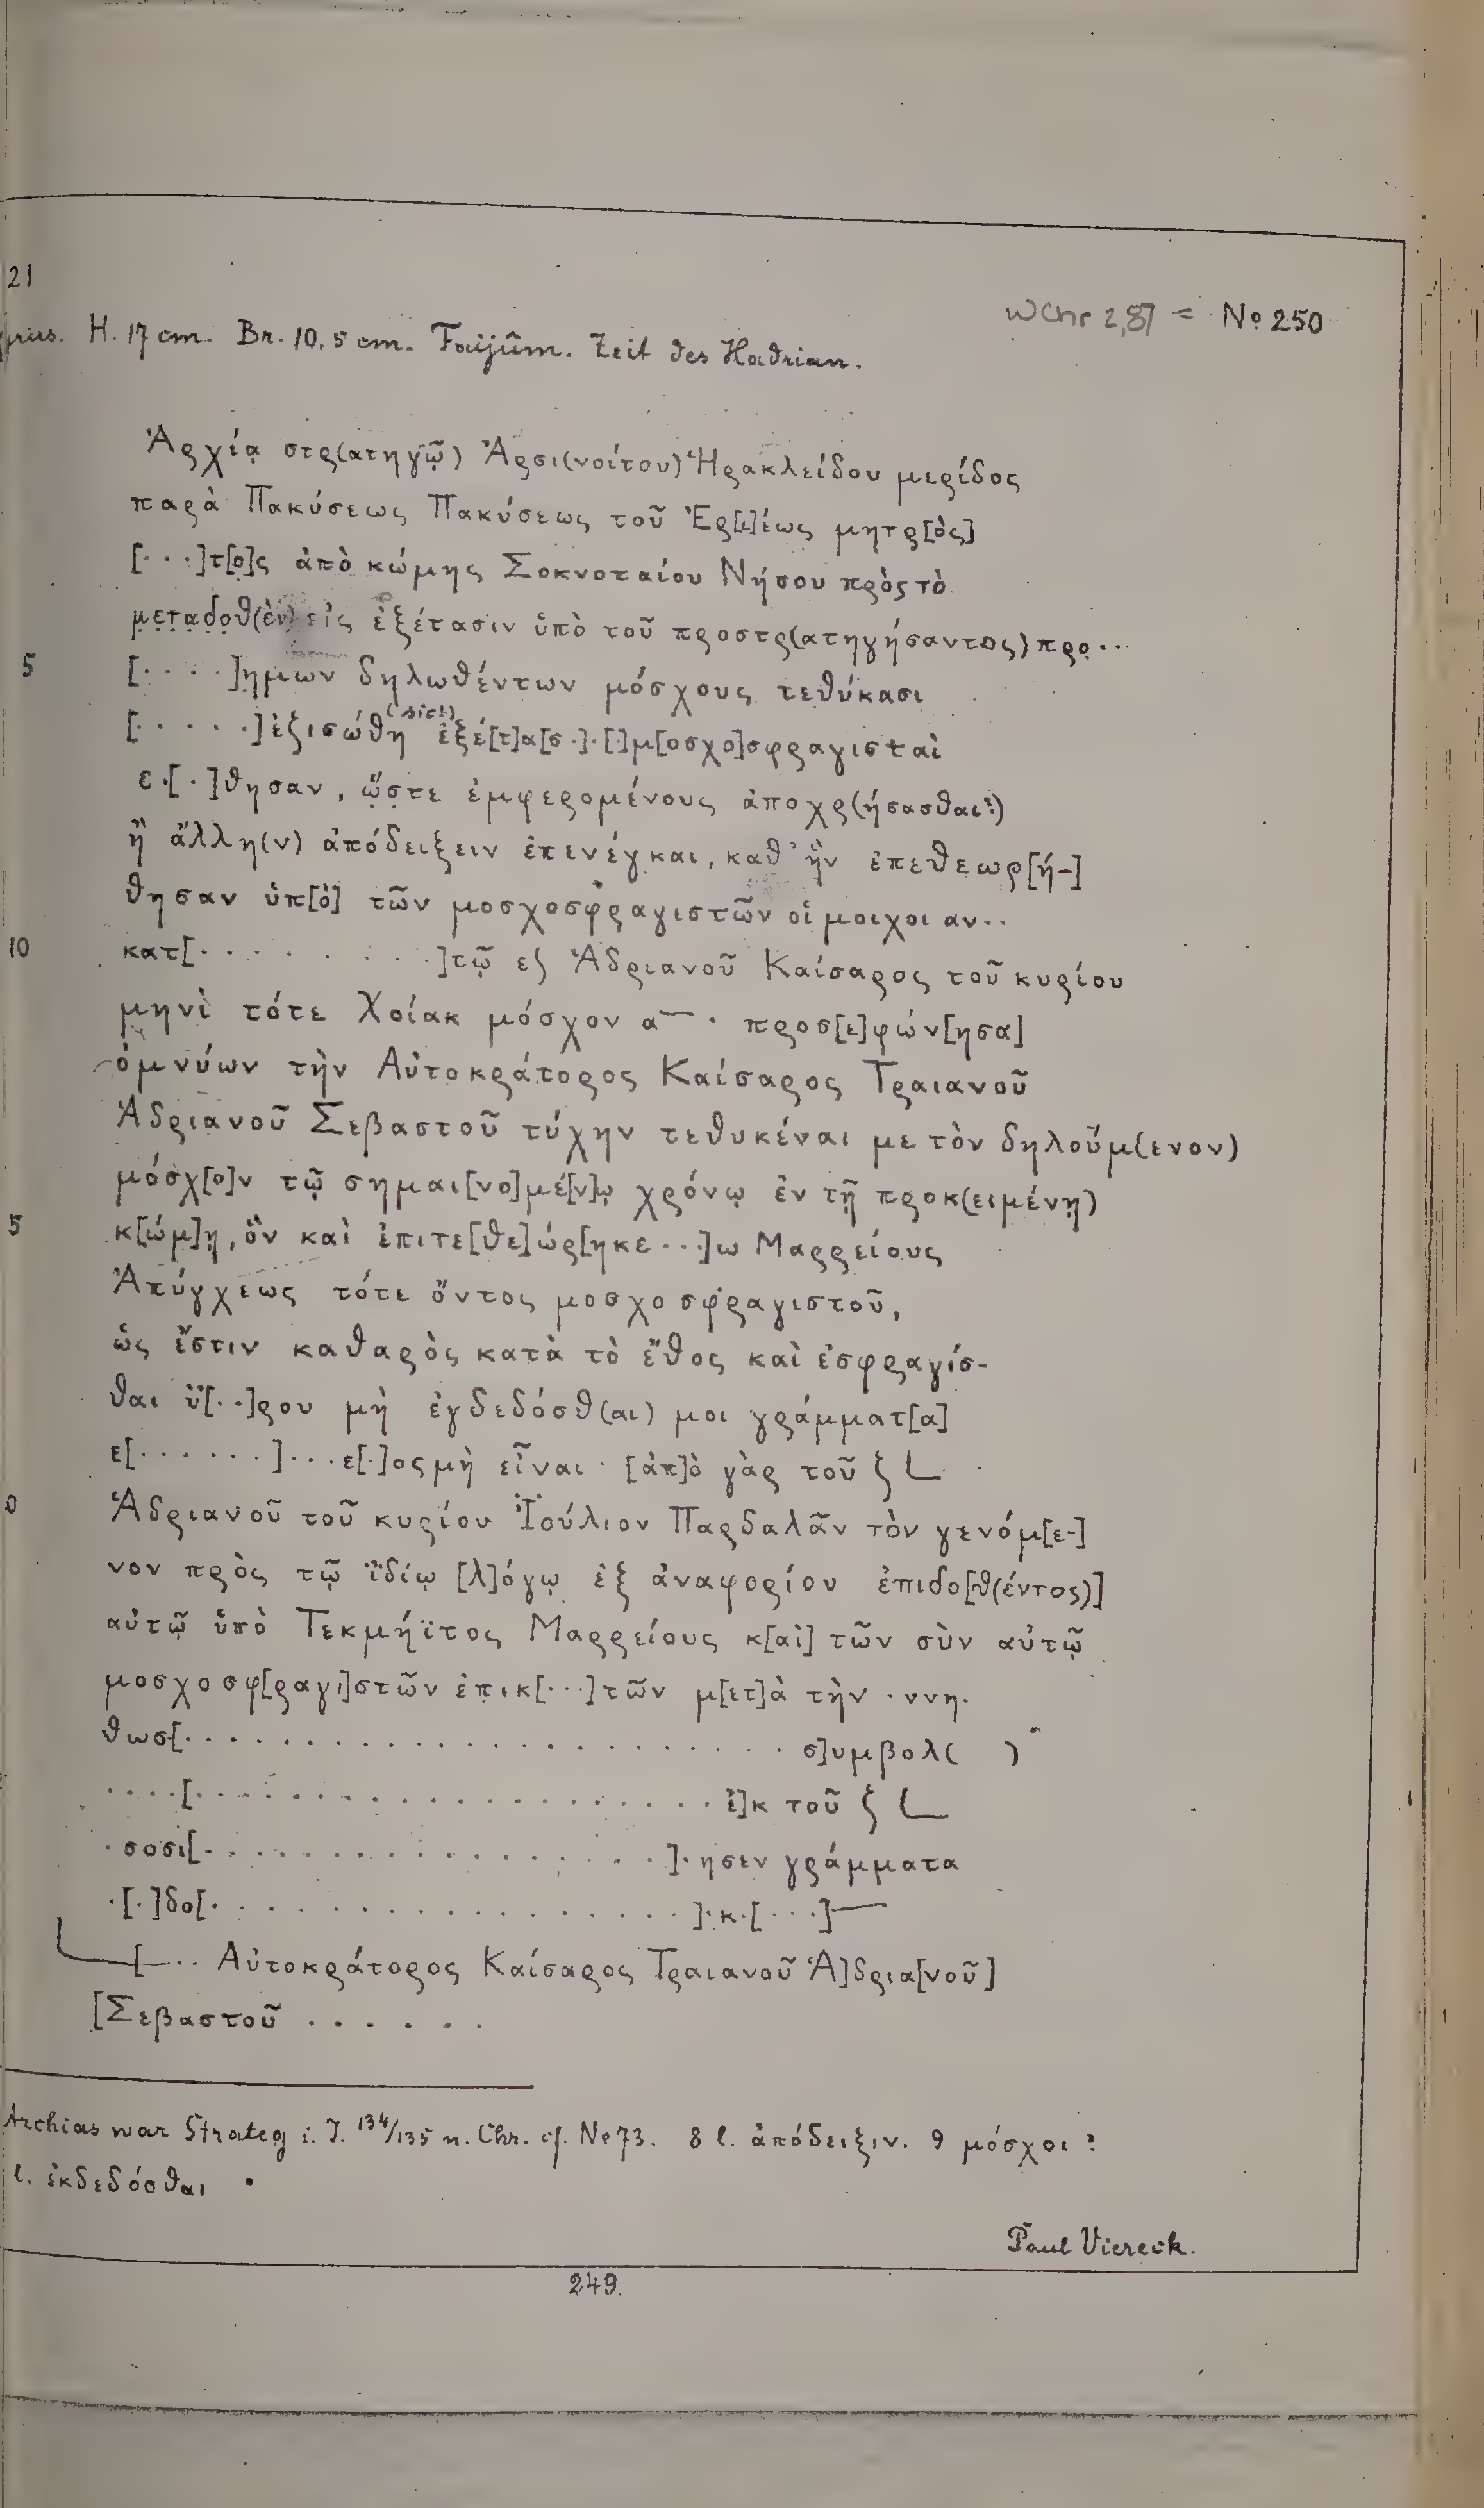 21
WChr 2,87 = No 250
H. 17 cm. Br. 10,5 cm. Faijûm. Zeit des Hadrian.
Ἀρχίᾳ στρ(ατηγῷ) Ἀρσι(νοίτου) Ἡρακλείδου μερίδος
παρὰ Πακύσεως Πακύσεως τοῦ Ἑρ[ι]έως μητρ[ὸς]
[· · ·]τ[ο]ς ἀπὸ κώμης Σοκνοπαίου Νήσου πρὸς τὸ
μεταδοθ(ὲν) εἰς ἐξέτασιν ὑπὸ τοῦ προστρ(ατηγήσαντος) προ··
5 [· · · ·]ημων δηλωθέντων μόσχους τεθύκασι
[· · · · ·]ἐξισώθη (sic!) ἐξέ[τ]α[σ ·]·[·]μ[οσχο]σφραγισταὶ
ε·[·]θησαν, ὥστε ἐμφερομένους ἀποχρ(ήσασθαι?)
ἢ ἄλλη(ν) ἀπόδειξειν ἐπενέγκαι, καθ᾽ ἣν ἐπεθεωρ[ή-]
θησαν ὑπ[ὸ] τῶν μοσχοσφραγιστῶν οἱ μοιχοι αν··
10 κατ[· · · · · · · ·]τῷ ε⟩ Ἀδριανοῦ Καίσαρος τοῦ κυρίου
μηνὶ τότε Χοίακ μόσχον α— · προσ[ε]φών[ησα]
ὀμνύων τὴν Αὐτοκράτορος Καίσαρος Τραιανοῦ
Ἀδριανοῦ Σεβαστοῦ τύχην τεθυκέναι με τὸν δηλούμ(ενον)
μόσχ[ο]ν τῷ σημαι[νο]μέ[ν]ῳ χρόνῳ ἐν τῇ προκ(ειμένῃ)
5 κ[ώμ]ῃ, ὃν καὶ ἐπιτε[θε]ώρ[ηκε ···]ω Μαρρείους
Ἀπύγχεως τότε ὄντος μοσχοσφραγιστοῦ,
ὡς ἔστιν καθαρὸς κατὰ τὸ ἔθος καὶ ἐσφραγίσ-
θαι ὑ[··]ρου μὴ ἐγδεδόσθ(αι) μοι γράμματ[α]
ε[· · · · · ·]···ε[·]ος μὴ εἶναι · [ἀπ]ὸ γὰρ τοῦ ζ L
0 Ἀδριανοῦ τοῦ κυρίου Ἰούλιον Παρδαλᾶν τὸν γενόμ[ε-]
νον πρὸς τῷ ἰδίῳ [λ]όγῳ ἐξ ἀναφορίου ἐπιδο[θ(έντος)]
αὐτῷ ὑπὸ Τεκμήϊτος Μαρρείους κ[αὶ] τῶν σὺν αὐτῷ
μοσχοσφ[ραγι]στῶν ἐπικ[···]των μ[ετ]ὰ τὴν ·ννη·
θωσ[· · · · · · · · · · · · · · · · · · · · σ]υμβολ( )
····[· · · · · · · · · · · · · · · · · · ἐ]κ τοῦ ζ L
·σοσι[· · · · · · · · · · · · · · · ·]·ησεν γράμματα
·[·]δο[· · · · · · · · · · · · · · · ·]·κ·[···]—
L—[·· Αὐτοκράτορος Καίσαρος Τραιανοῦ Ἁ]δρια[νοῦ]
[Σεβαστοῦ · · · · · ·
Archias war Strateg i. J. 134/135 n. Chr. cf. No 73. 8 l. ἀπόδειξιν. 9 μόσχοι ?
l. ἐκδεδόσθαι
Paul Viereck.
249.